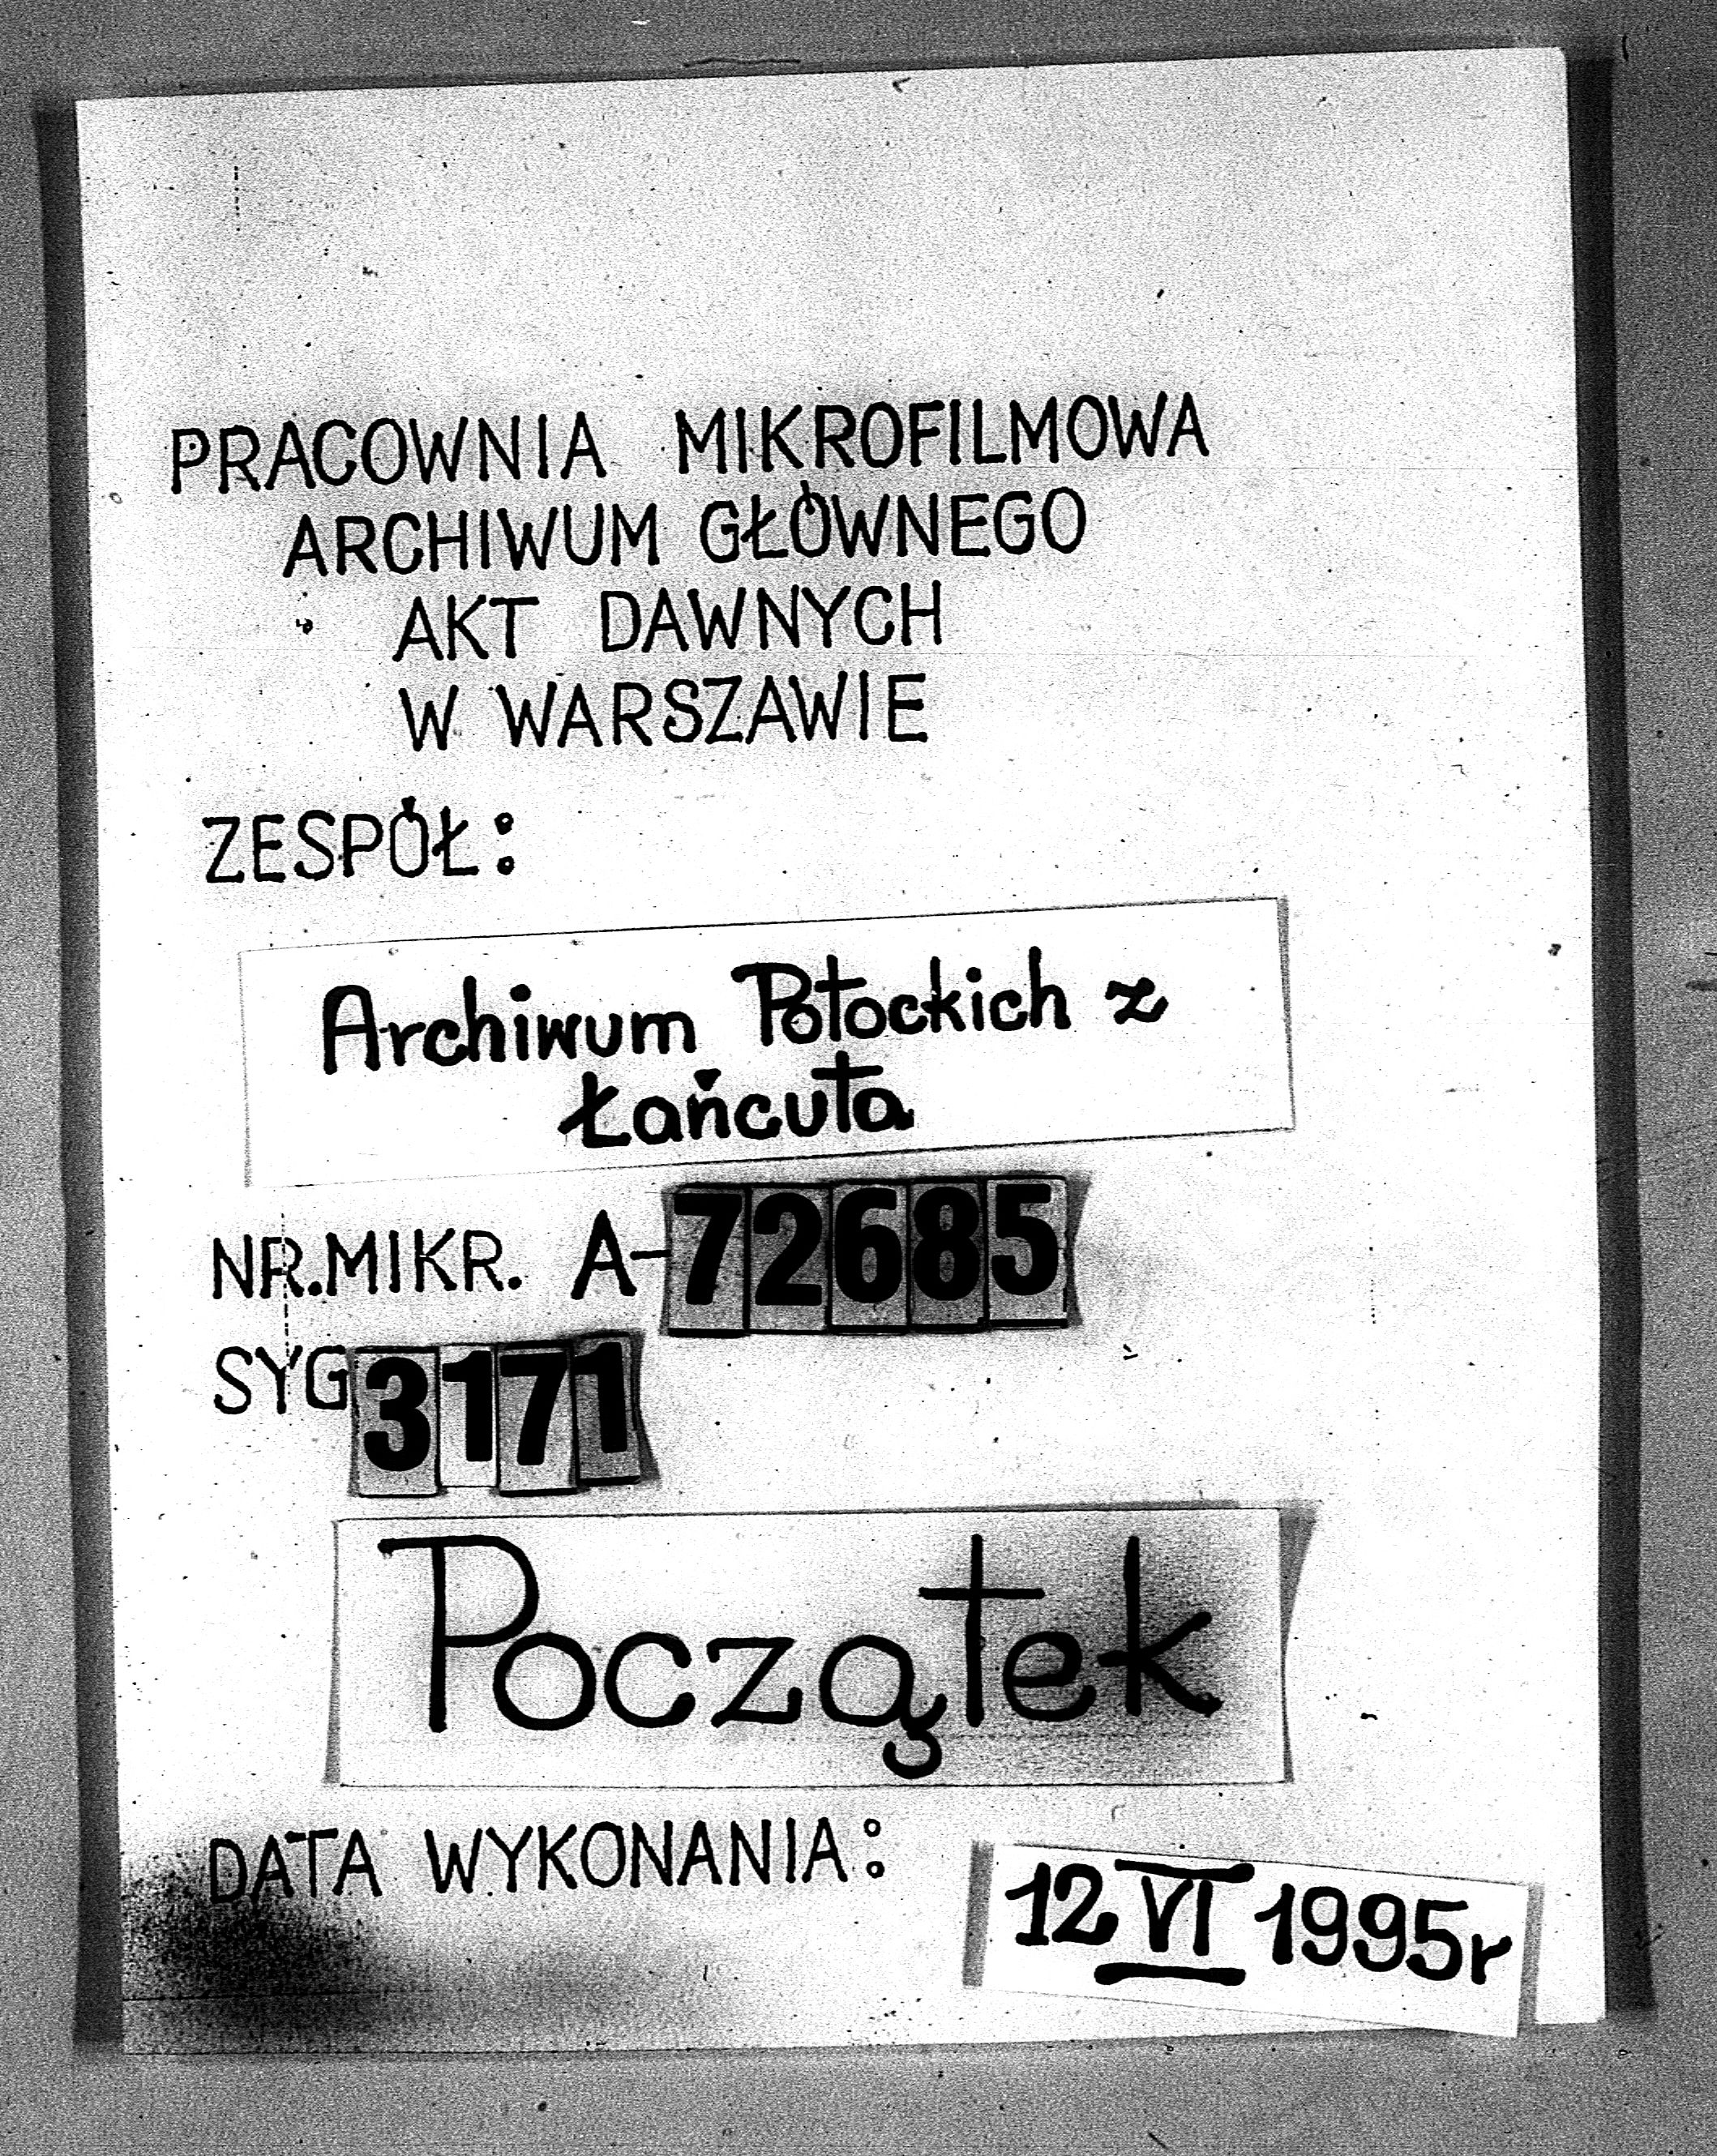 PRACOWNIA MIKROFILMOWA
ARCHIWUM GŁÓWNEGO
AKT DAWNYCH
W WARSZAWIE
ZESPÓŁ:
Archiwum Potockich z
Łańcuta
NR.MIKR. A-72685
SYG 3171
Początek
DATA WYKONANIA:
12 VI 1995r